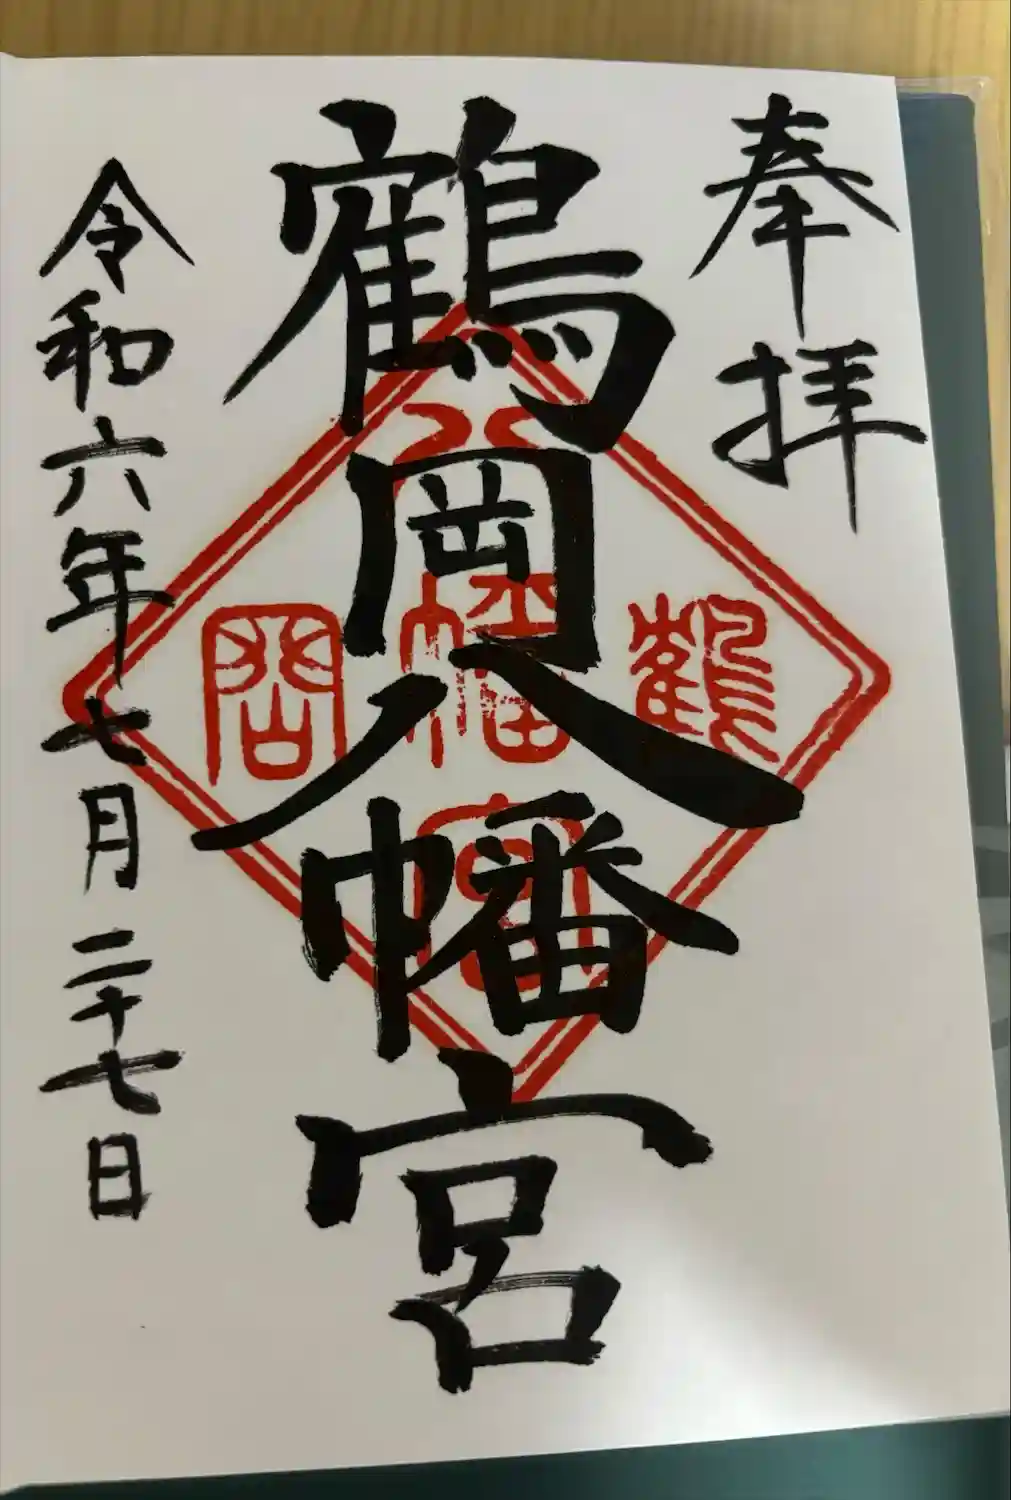 奉拝
鶴岡八幡宮
鶴
八幡宮
岡
令和六年七月二十七日